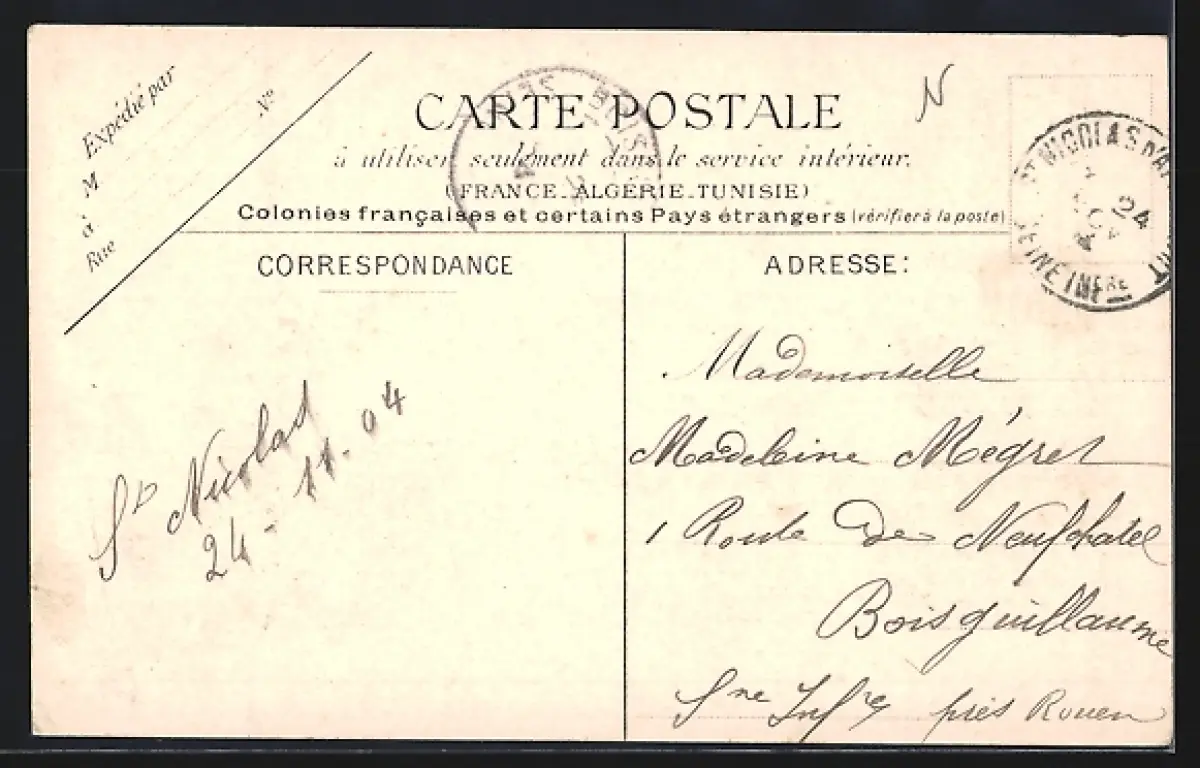 Expédié par
N°
M
à
Rue
CARTE POSTALE
N
à utiliser seulement dans le service intérieur.
(FRANCE_ALGÉRIE_TUNISIE)
Colonies françaises et certains Pays étrangers (vérifier à la poste)
ST NICOLAS D'A
24
SEINE INFRE
CORRESPONDANCE
ADRESSE:
St Nicolas
24-11.04
Mademoiselle
Madeleine Mégret
1 Route de Neufchatel
Boisguillaume
Sne Infre près Rouen